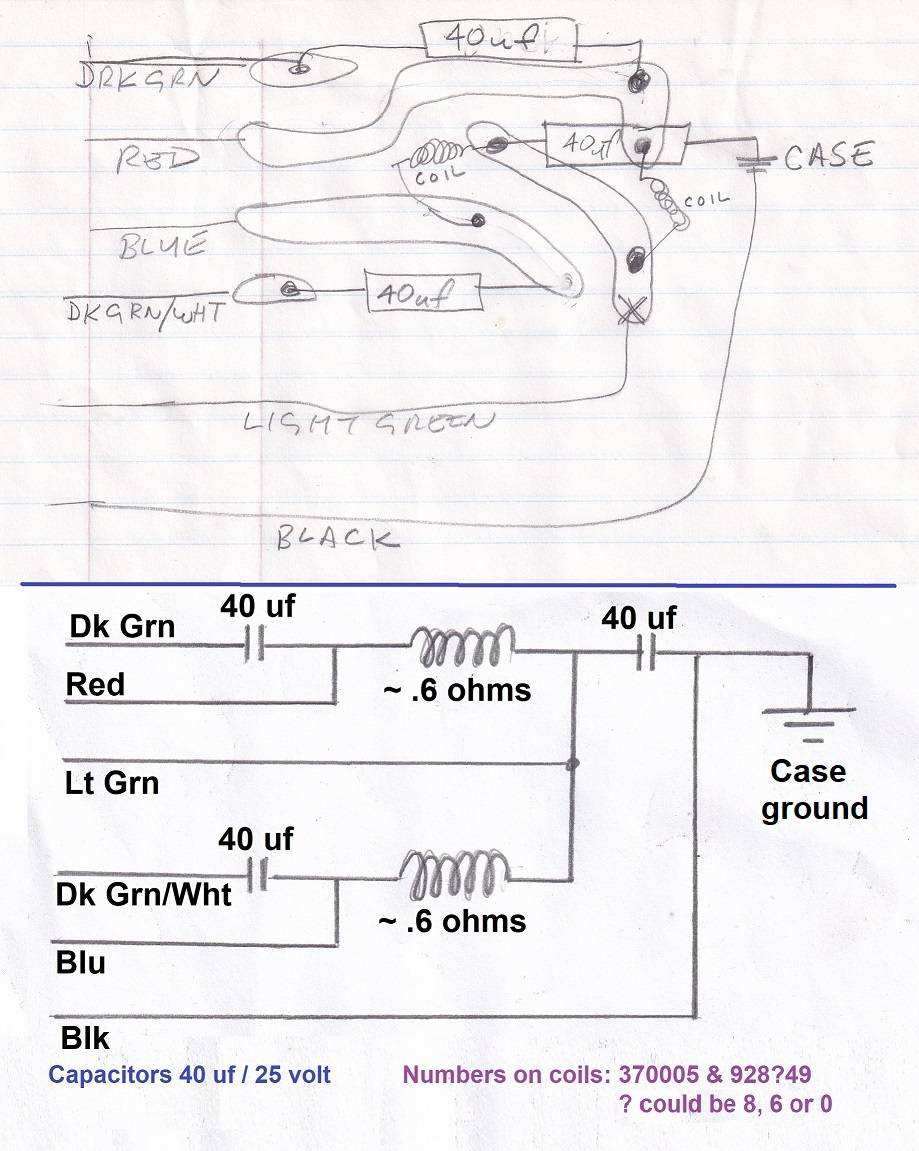 40uf
DRKGRN
RED
40uf
CASE
COIL
COIL
BLUE
40uf
DKGRN/WHT
LIGHT GREEN
BLACK
40 uf
40 uf
Dk Grn
Red
~ .6 ohms
Lt Grn
Case
ground
40 uf
Dk Grn/Wht
~ .6 ohms
Blu
Blk
Capacitors 40 uf / 25 volt
Numbers on coils: 370005 & 928?49
? could be 8, 6 or 0